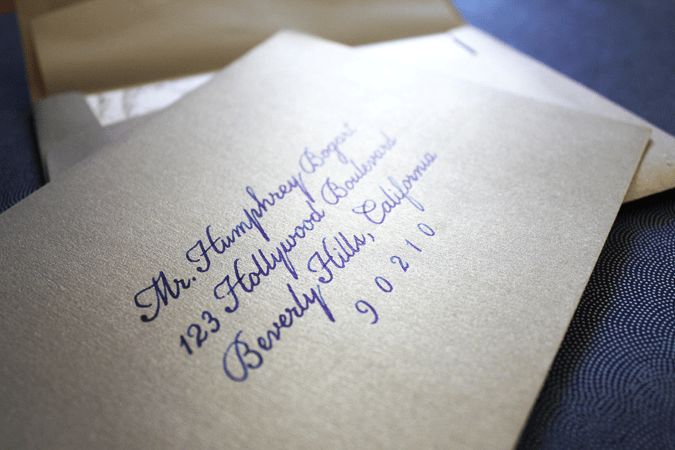 Mr. Humphrey Bogart
123 Hollywood Boulevard
Beverly Hills, California
90210